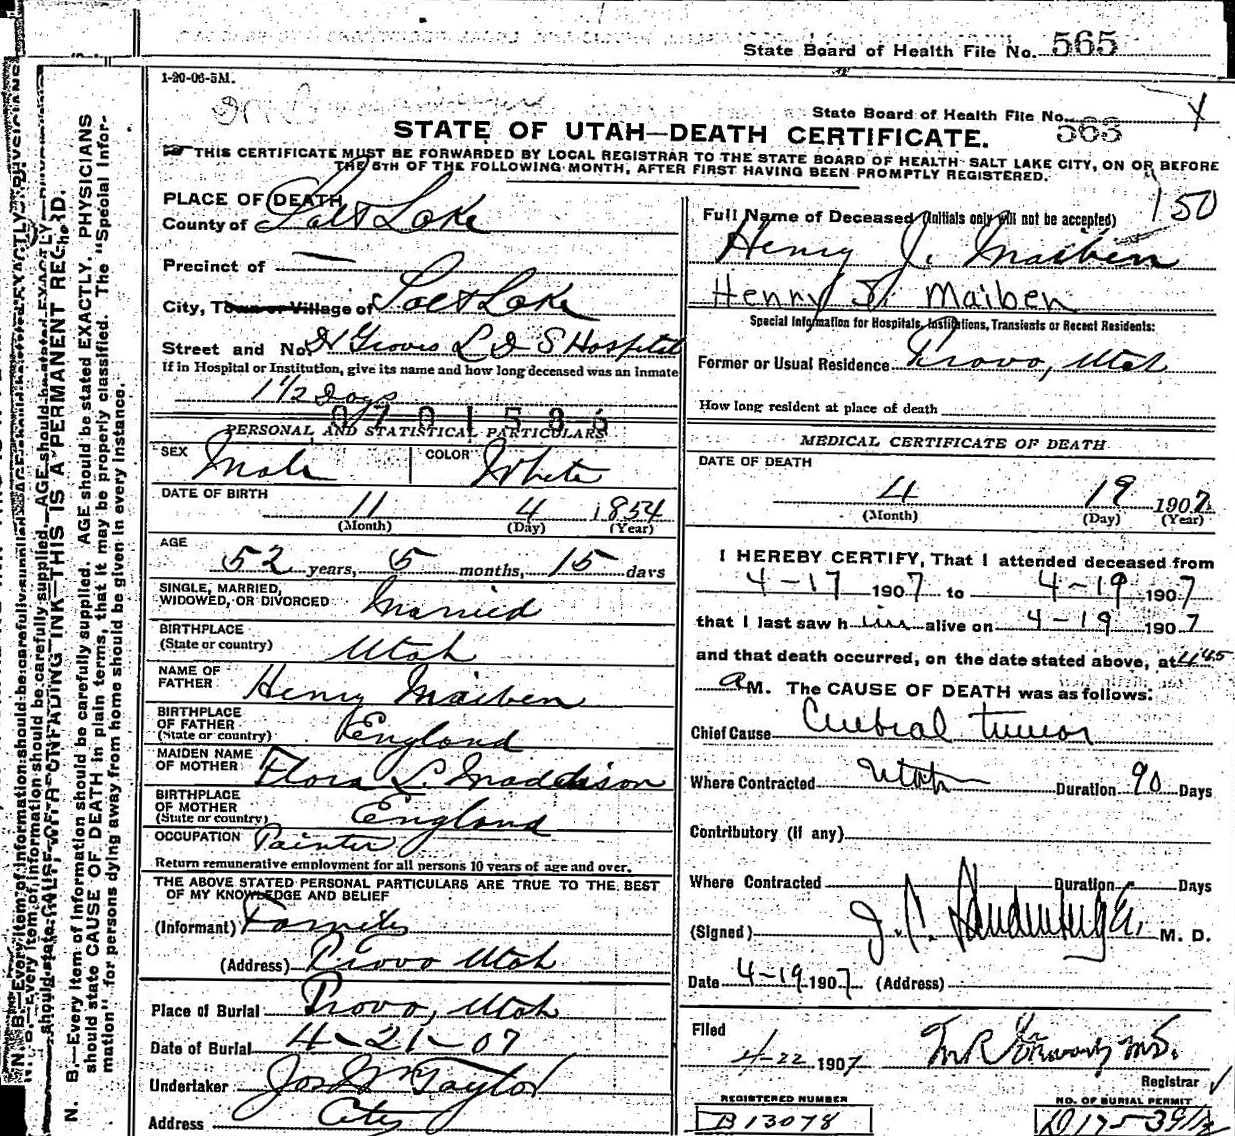 State Board of Health File No. 565
1-20-06-5M.
State Board of Health File No. 565
STATE OF UTAH—DEATH CERTIFICATE.
THIS CERTIFICATE MUST BE FORWARDED BY LOCAL REGISTRAR TO THE STATE BOARD OF HEALTH SALT LAKE CITY, ON OR BEFORE
THE 5TH OF THE FOLLOWING MONTH, AFTER FIRST HAVING BEEN PROMPTLY REGISTERED.
150
PLACE OF DEATH
County of Salt Lake
Precinct of
City, Town or Village of Salt Lake
Street and No. Groves L D S Hospital
If in Hospital or Institution, give its name and how long deceased was an inmate
1 1/2 Days
PERSONAL AND STATISTICAL PARTICULARS
SEX Male COLOR White
DATE OF BIRTH
11 4 1854
(Month) (Day) (Year)
AGE
52 years, 5 months, 15 days
SINGLE, MARRIED,
WIDOWED, OR DIVORCED Married
BIRTHPLACE
(State or country) Utah
NAME OF
FATHER Henry Maiben
BIRTHPLACE
OF FATHER
(State or country) England
MAIDEN NAME
OF MOTHER Flora L. Maddison
BIRTHPLACE
OF MOTHER
(State or country) England
OCCUPATION Painter
Return remunerative employment for all persons 10 years of age and over.
THE ABOVE STATED PERSONAL PARTICULARS ARE TRUE TO THE BEST
OF MY KNOWLEDGE AND BELIEF
(Informant)
(Address) Provo Utah
Place of Burial Provo, Utah
Date of Burial 4-21-07
Undertaker Jos Wm Taylor
Address City
Full Name of Deceased (Initials only will not be accepted)
Henry J. Maiben
Henry J. Maiben
Special Information for Hospitals, Institutions, Transients or Recent Residents:
Former or Usual Residence Provo, Utah
How long resident at place of death
MEDICAL CERTIFICATE OF DEATH
DATE OF DEATH
4 19 1907
(Month) (Day) (Year)
I HEREBY CERTIFY, That I attended deceased from
4-17 1907 to 4-19 1907
that I last saw him alive on 4-19 1907
and that death occurred, on the date stated above, at 4 45
a M. The CAUSE OF DEATH was as follows:
Chief Cause Cerebral tumor
Where Contracted Utah Duration 90 Days
Contributory (if any)
Where Contracted Duration Days
(Signed) M. D.
Date 4-19 1907 (Address)
Filed
4-22 1907
Registrar
REGISTERED NUMBER
B 13078
NO. OF BURIAL PERMIT
N. B.—Every item of information should be carefully supplied. AGE should be stated EXACTLY. PHYSICIANS
should state CAUSE OF DEATH in plain terms, that it may be properly classified. The "Special Infor-
mation" for persons dying away from home should be given in every instance.
WITH UNFADING INK—THIS IS A PERMANENT RECORD.